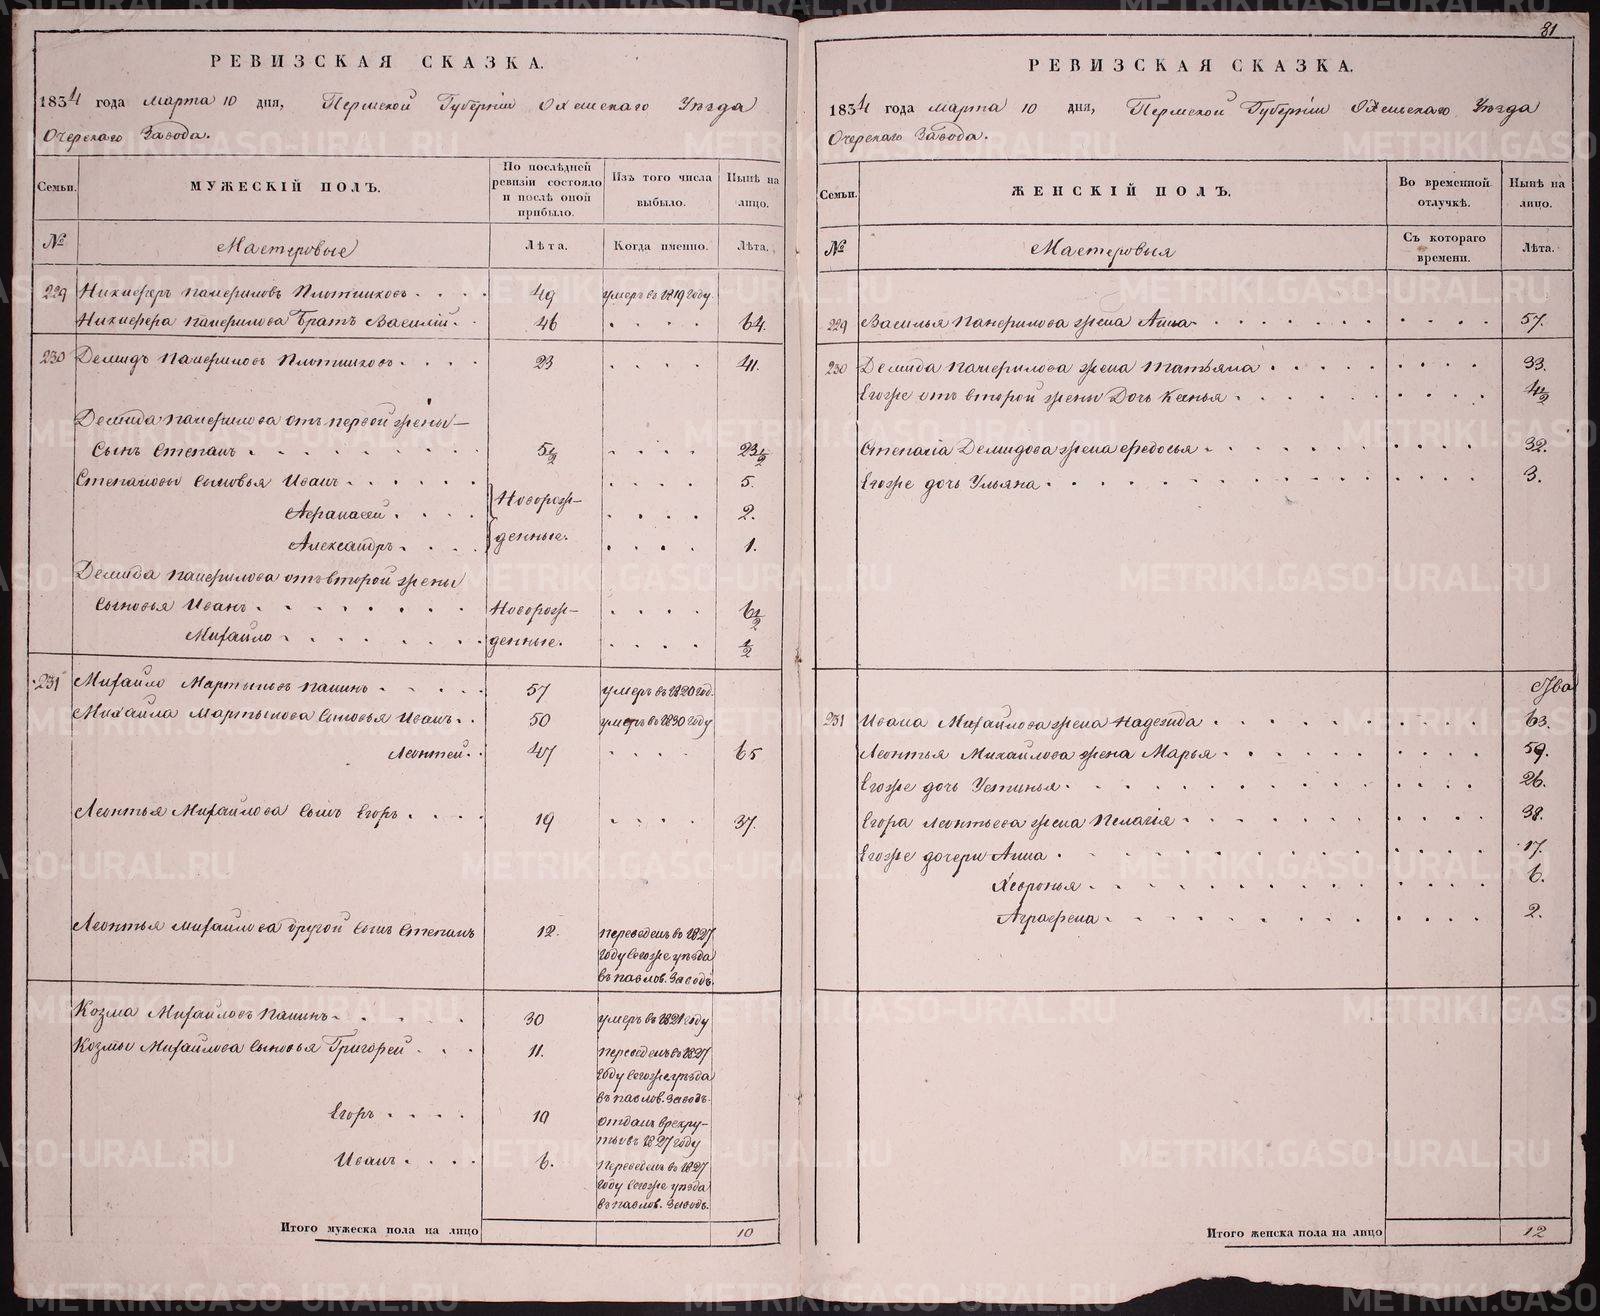 РЕВИЗСКАЯ СКАЗКА.
1834 года марта 10 дня, Пермской Губернiи Оханскаго Уѣзда
Очерскаго Завода.
Семьи. МУЖЕСКIЙ ПОЛЪ. По послѣдней ревизiи состояло и послѣ оной прибыло. Изъ того числа выбыло. Нынѣ на лицо.
№ Мастеровые Лѣта. Когда именно. Лѣта.
229 Никифоръ Панфиловъ Плотниковъ 49 умеръ въ 1819 году.
Никифора Панфилова братъ Василiй 46 64.
230 Демидъ Панфиловъ Плотниковъ 23 41.
Демида Панфилова отъ первой жены
сынъ Степанъ 5 1/2 23 1/2
Степановы сыновья Иванъ 5.
Афанасей Новорожденные. 2.
Александръ 1.
Демида Панфилова отъ второй жены
сыновья Иванъ Новорожденные. 6 1/2
Михайло 1/2
231 Михайло Мартыновъ Панинъ 57 умеръ въ 1820 год.
Михайла Мартынова сыновья Иванъ 50 умеръ въ 1830 году
Леонтей 47 65
Леонтья Михайлова сынъ Егоръ 19 37.
Леонтья Михайлова другой сынъ Степанъ 12. переведенъ въ 1827
году сегоже уѣзда
въ павлов. заводъ.
Козма Михайловъ Панинъ 30 умеръ въ 1821 году
Козмы Михайлова сыновья Григорей 11. переведенъ въ 1827
году сегоже уѣзда
въ павлов. заводъ.
Егоръ 10 отданъ в рекру-
ты въ 1827 году
Иванъ 6. переведенъ въ 1827
году сегоже уѣзда
въ павлов. заводъ.
Итого мужеска пола на лицо 10
81
РЕВИЗСКАЯ СКАЗКА.
1834 года марта 10 дня, Пермской Губернiи Оханскаго Уѣзда
Очерскаго Завода.
Семьи. ЖЕНСКIЙ ПОЛЪ. Во временной отлучкѣ. Нынѣ на лицо.
№ Мастеровыя Съ котораго времени. Лѣта.
229 Василья Панфилова жена Анна 57.
230 Демида Панфилова жена Татьяна 33.
Егоже отъ второй жены дочь Ксенья 4 1/2
Степана Демидова жена Федосья 32.
Егоже дочь Ульяна 3.
231 Ивана Михайлова жена Надежда 63.
Леонтья Михайлова жена Марья 59.
Егоже дочь Устинья 26.
Егора Леонтьева жена Пелагiя 38.
Егоже дочери Анна 17.
Хавронья 6.
Аграфена 2.
Итого женска пола на лицо 12
METRIKI.GASO-URAL.RU